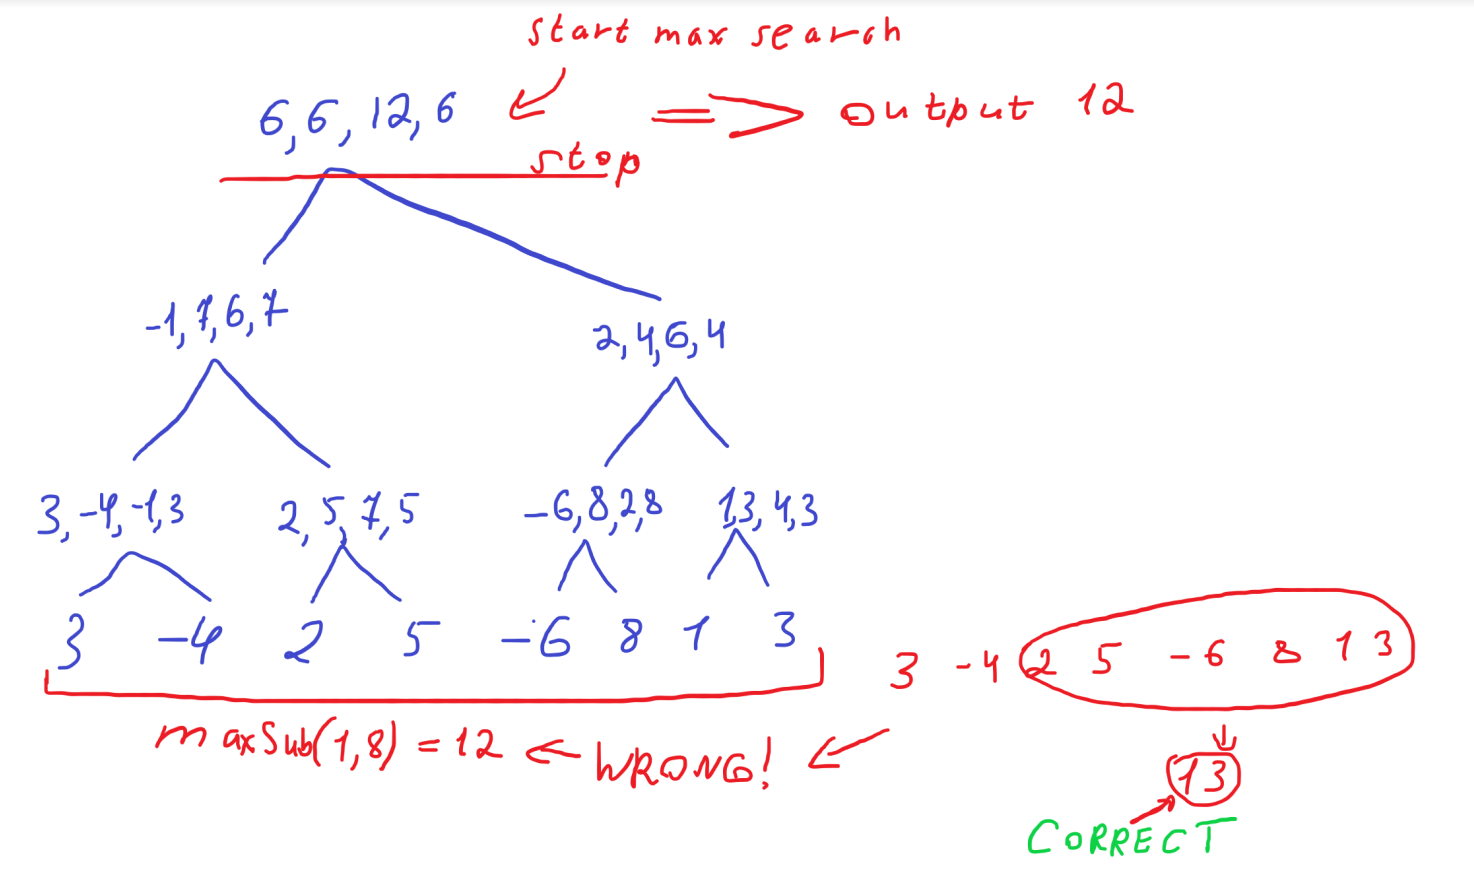 start max search
6, 6, 12, 6
output 12
stop
-1, 7, 6, 7
2, 4, 6, 4
3, -4, -1, 3
2, 5, 7, 5
-6, 8, 2, 8
1, 3, 4, 3
3 -4 2 5 -6 8 1 3
3 -4 2 5 -6 8 1 3
maxSub(1,8) = 12
WRONG!
13
CORRECT